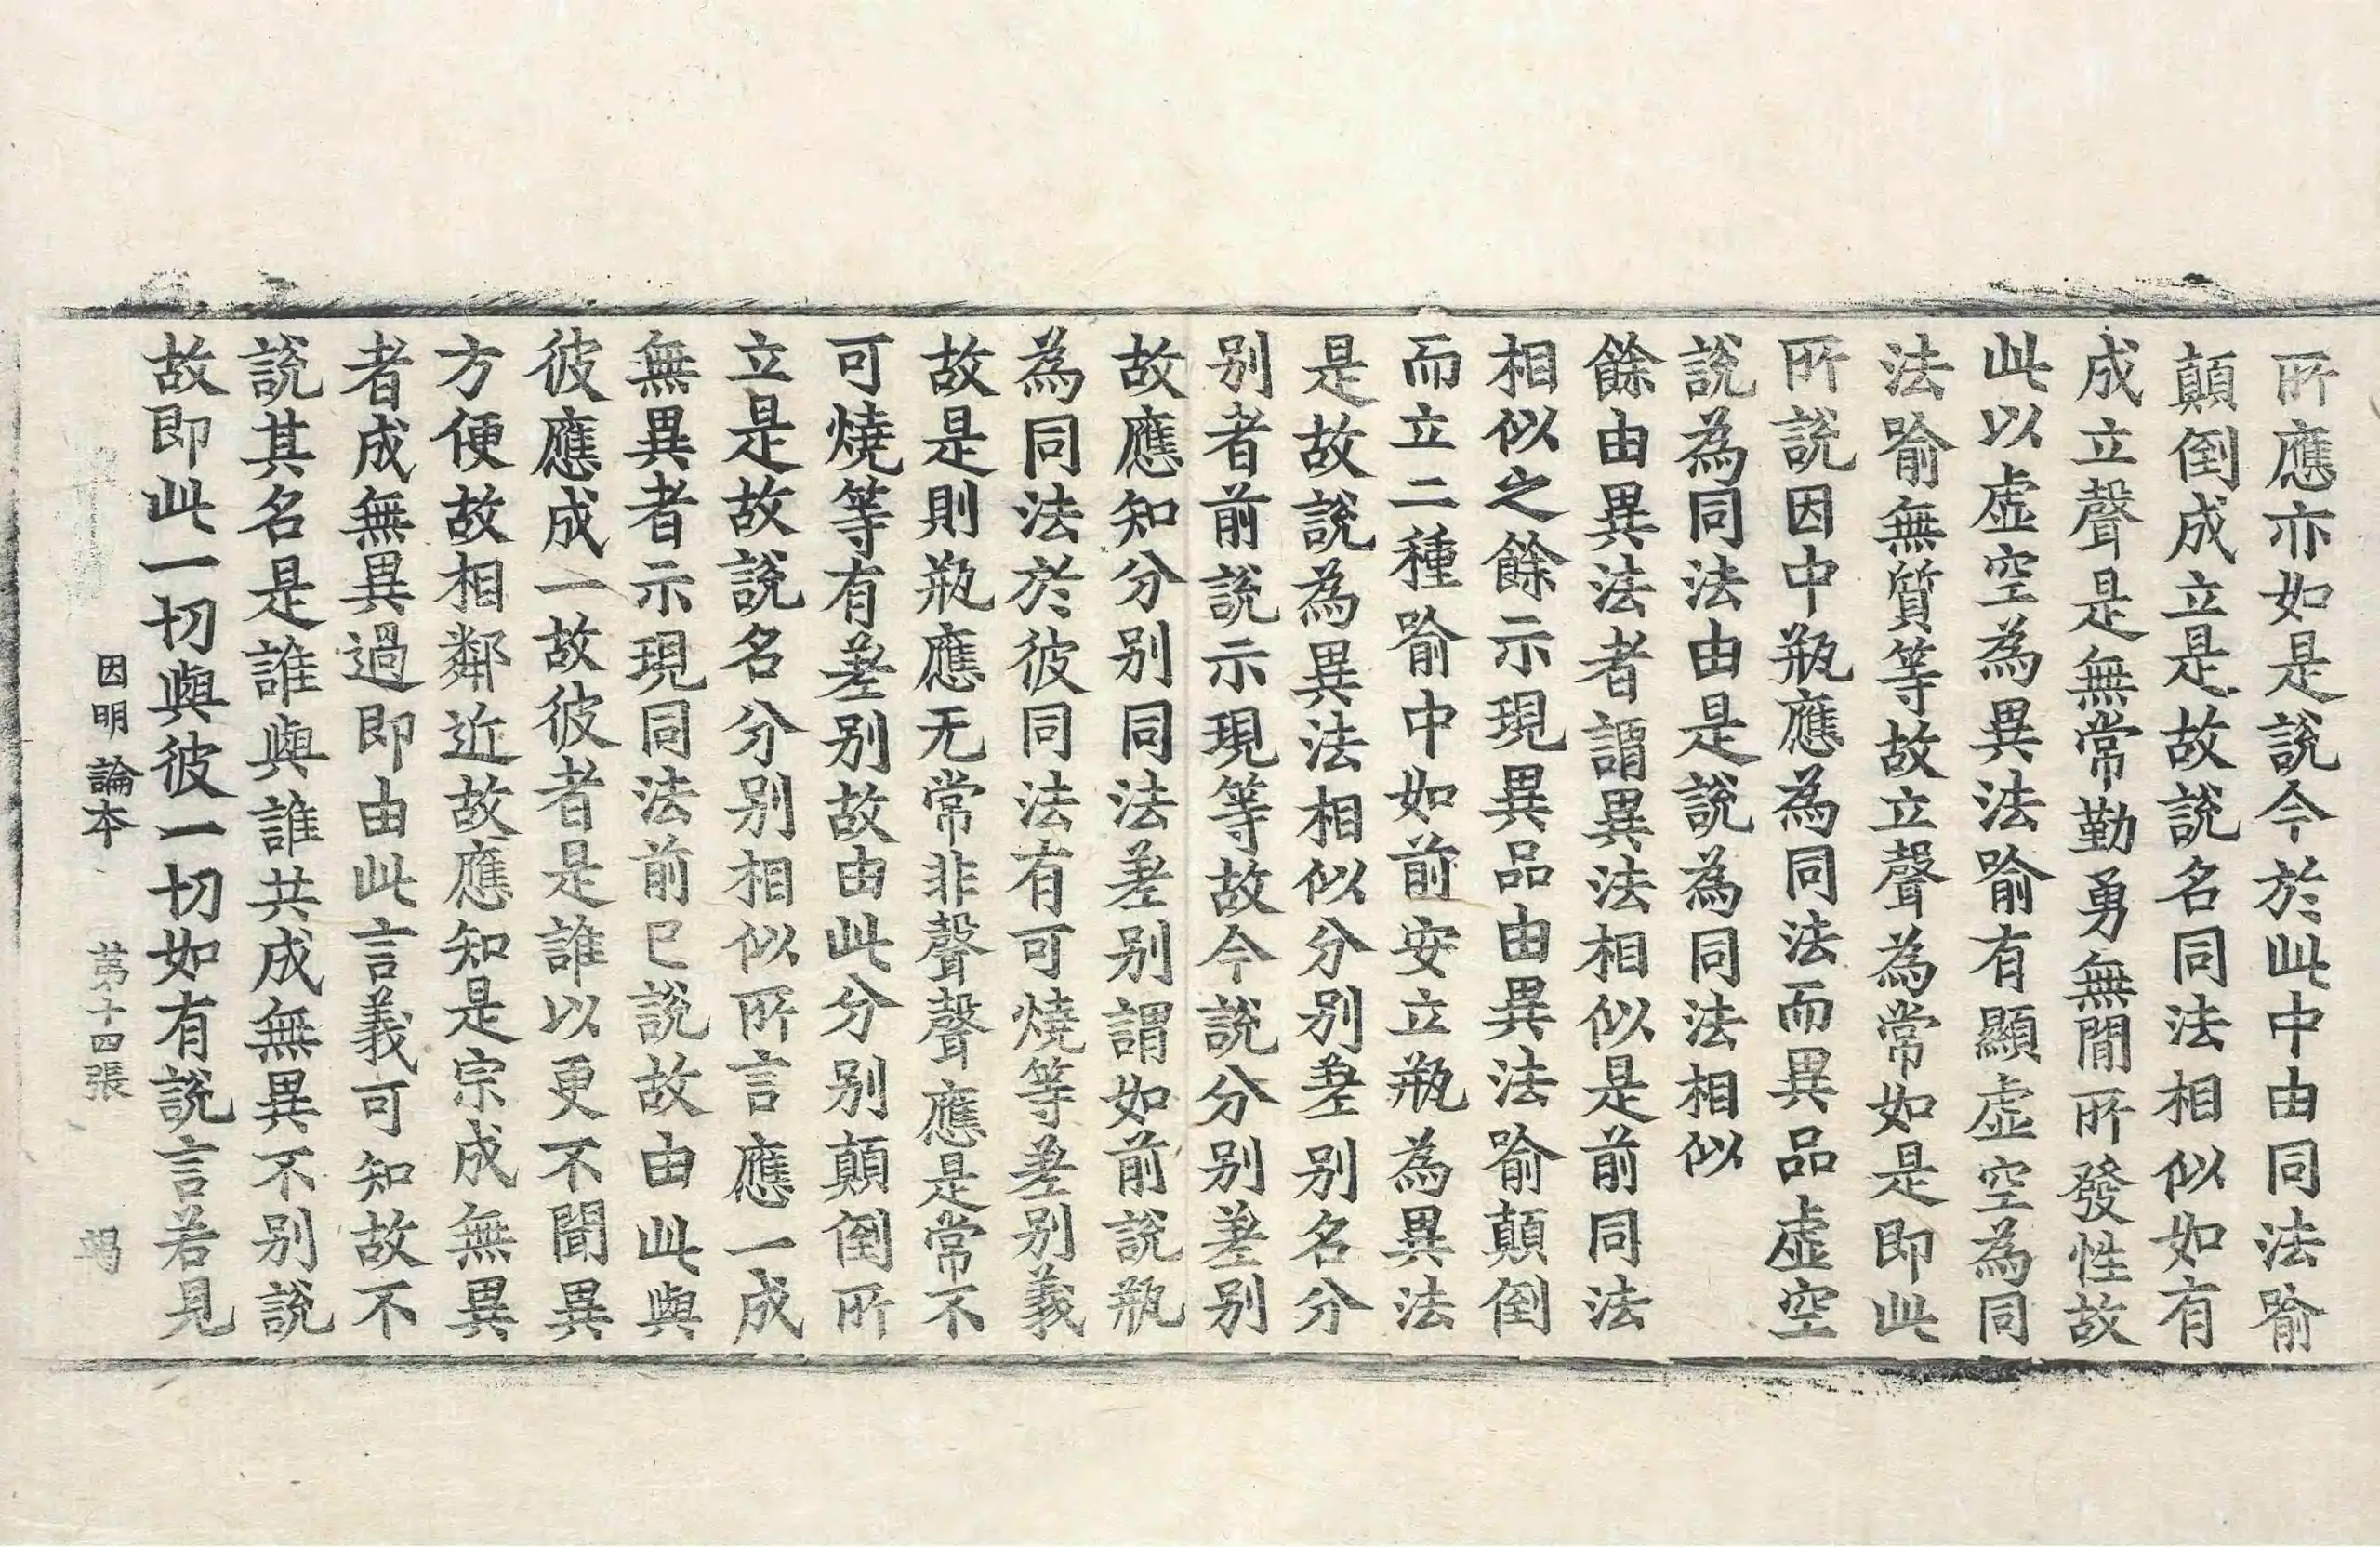 所應亦如是說今於此中由同法喻
顛倒成立是故說名同法相似如有
成立聲是無常勤勇無閒所發性故
此以虛空為異法喻有顯虛空為同
法喻無質等故立聲為常如是即此
所說因中瓶應為同法而異品虛空
說為同法由是說為同法相似
餘由異法者謂異法相似是前同法
相似之餘示現異品由異法喻顛倒
而立二種喻中如前安立瓶為異法
是故說為異法相似分別差別名分
別者前說示現等故今說分別差別
故應知分別同法差別謂如前說瓶
為同法於彼同法有可燒等差別義
故是則瓶應无常非聲聲應是常不
可燒等有差別故由此分別顛倒所
立是故說名分別相似所言應一成
無異者示現同法前已說故由此與
彼應成一故彼者是誰以更不聞異
方便故相鄰近故應知是宗成無異
者成無異過即由此言義可知故不
說其名是誰與誰共成無異不別說
故即此一切與彼一切如有說言若見
因明論本 苐十四張 竭